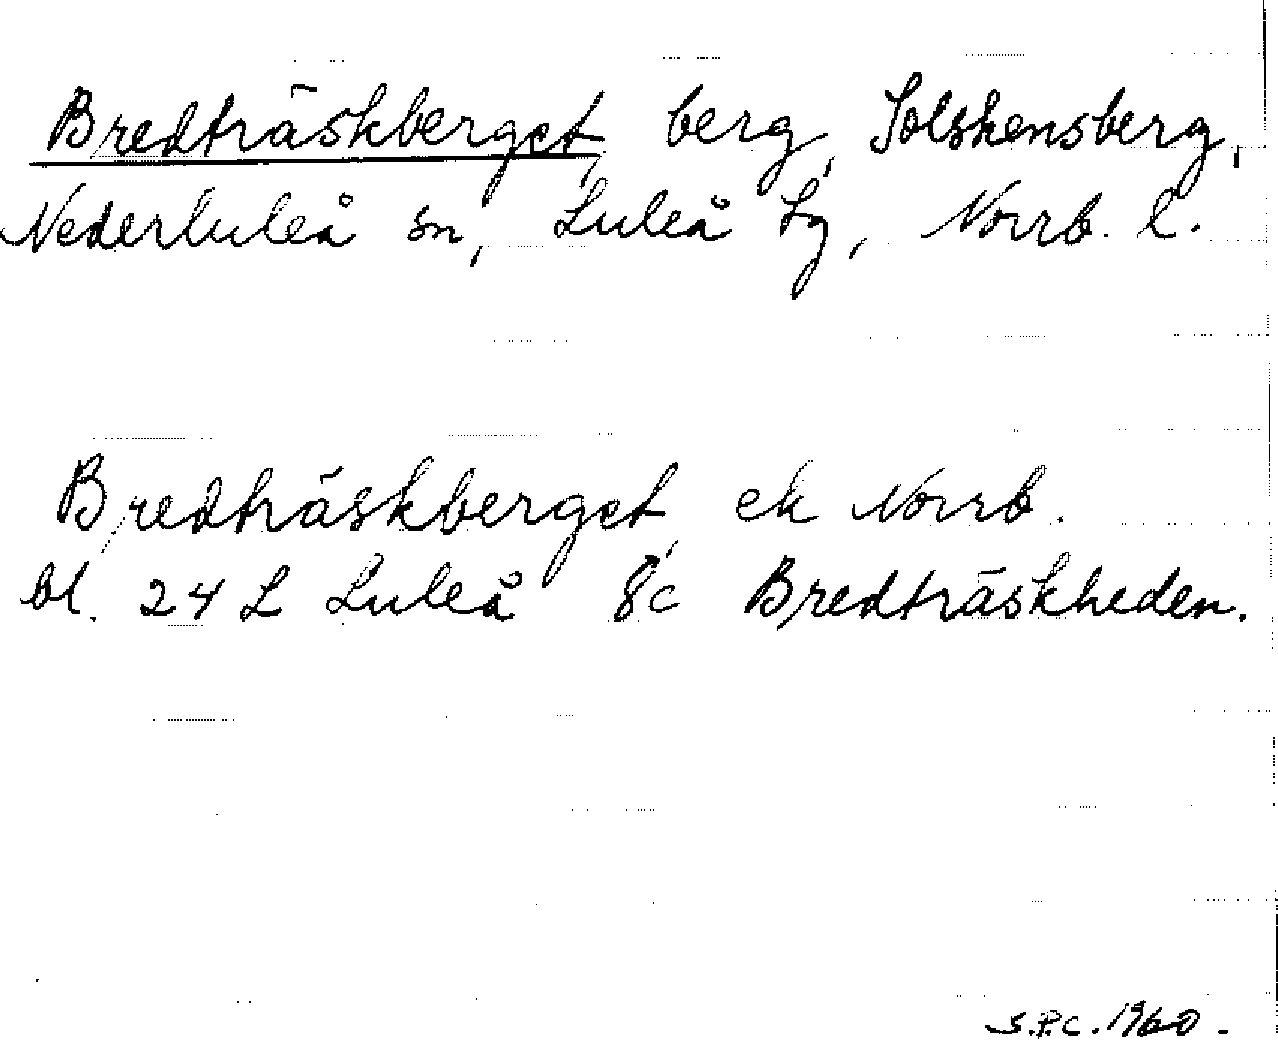 Bredträskberget, berg, Solskensberg,
Nederluleå sn, Luleå tg, Norrb. l.
Bredträskberget, ek Norrb.
bl. 24 L Luleå 8c Bredträskheden.
S.P.C. 1960.